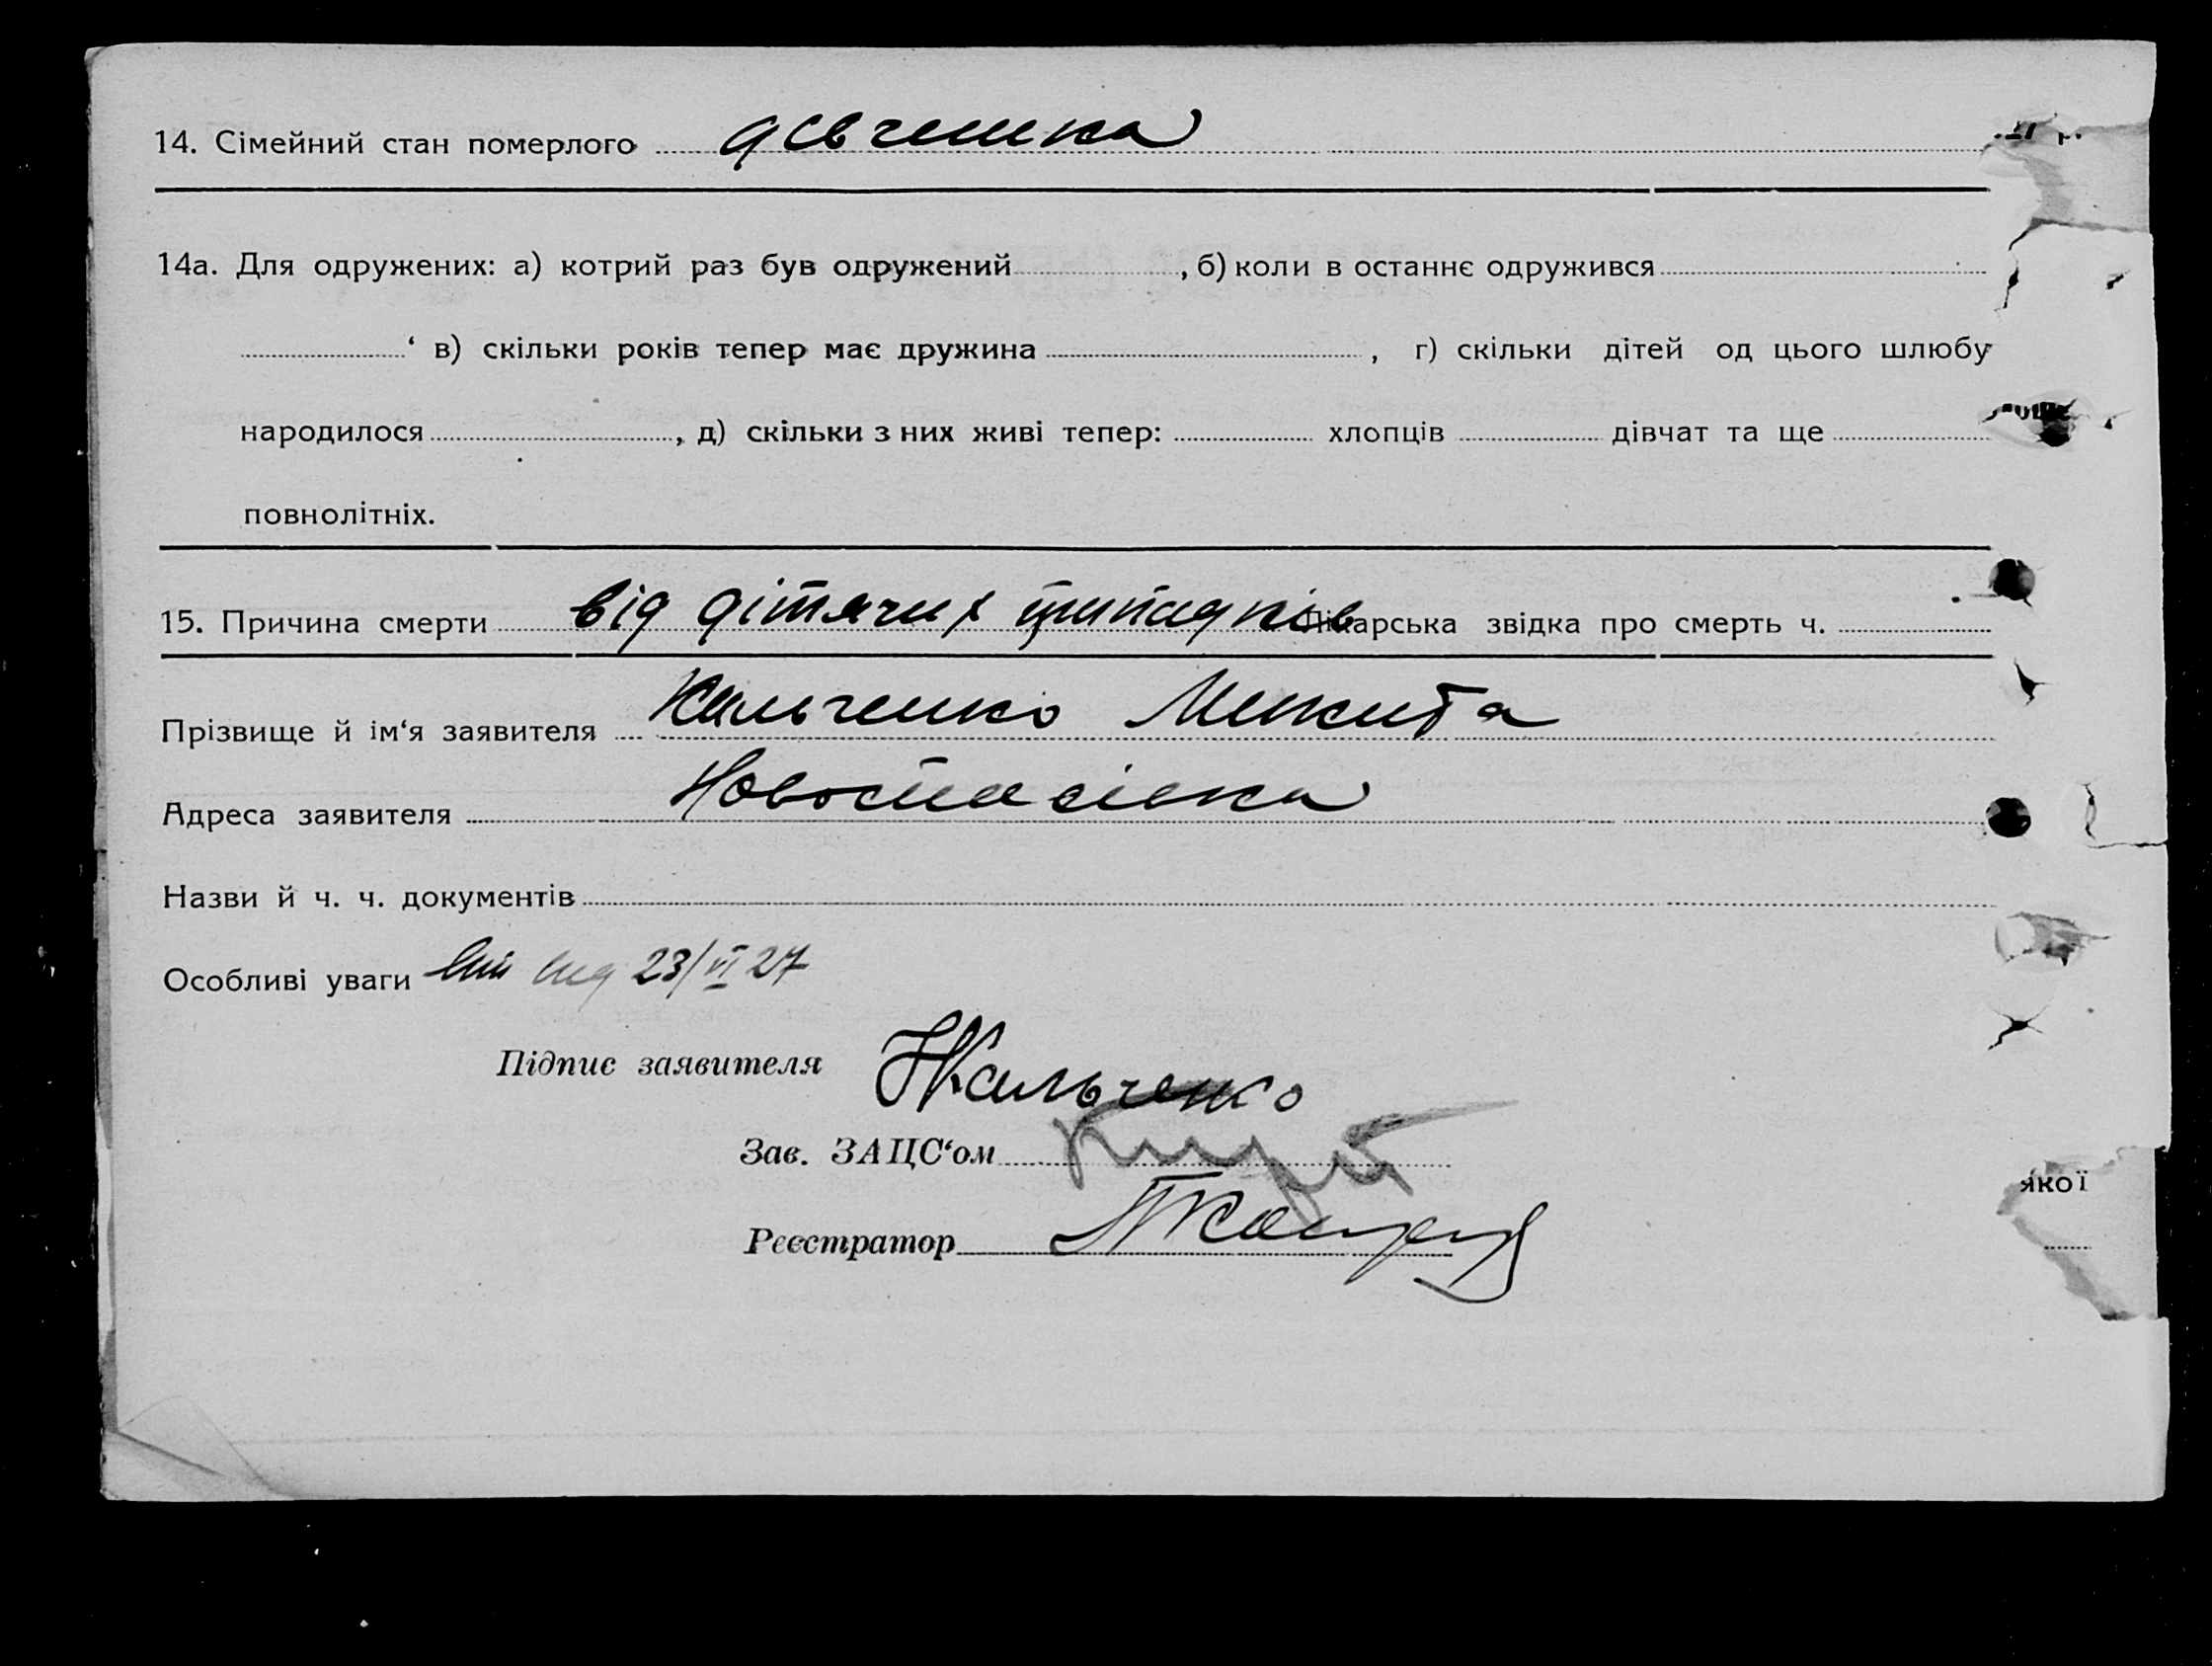 14. Сімейний стан померлого дівчинка
14а. Для одружених: а) котрий раз був одружений , б) коли в останнє одружився
‘ в) скільки років тепер має дружина , г) скільки дітей од цього шлюбу
народилося , д) скільки з них живі тепер: хлопців дівчат та ще
повнолітніх.
15. Причина смерти від дітячих припадків Лікарська звідка про смерть ч.
Прізвище й ім‘я заявителя Кальченко Микита
Адреса заявителя Новостасівка
Назви й ч. ч. документів
Особливі уваги 23/VI 27
Підпис заявителя НКальченко
Зав. ЗАЦС‘ом
Реєстратор
якої